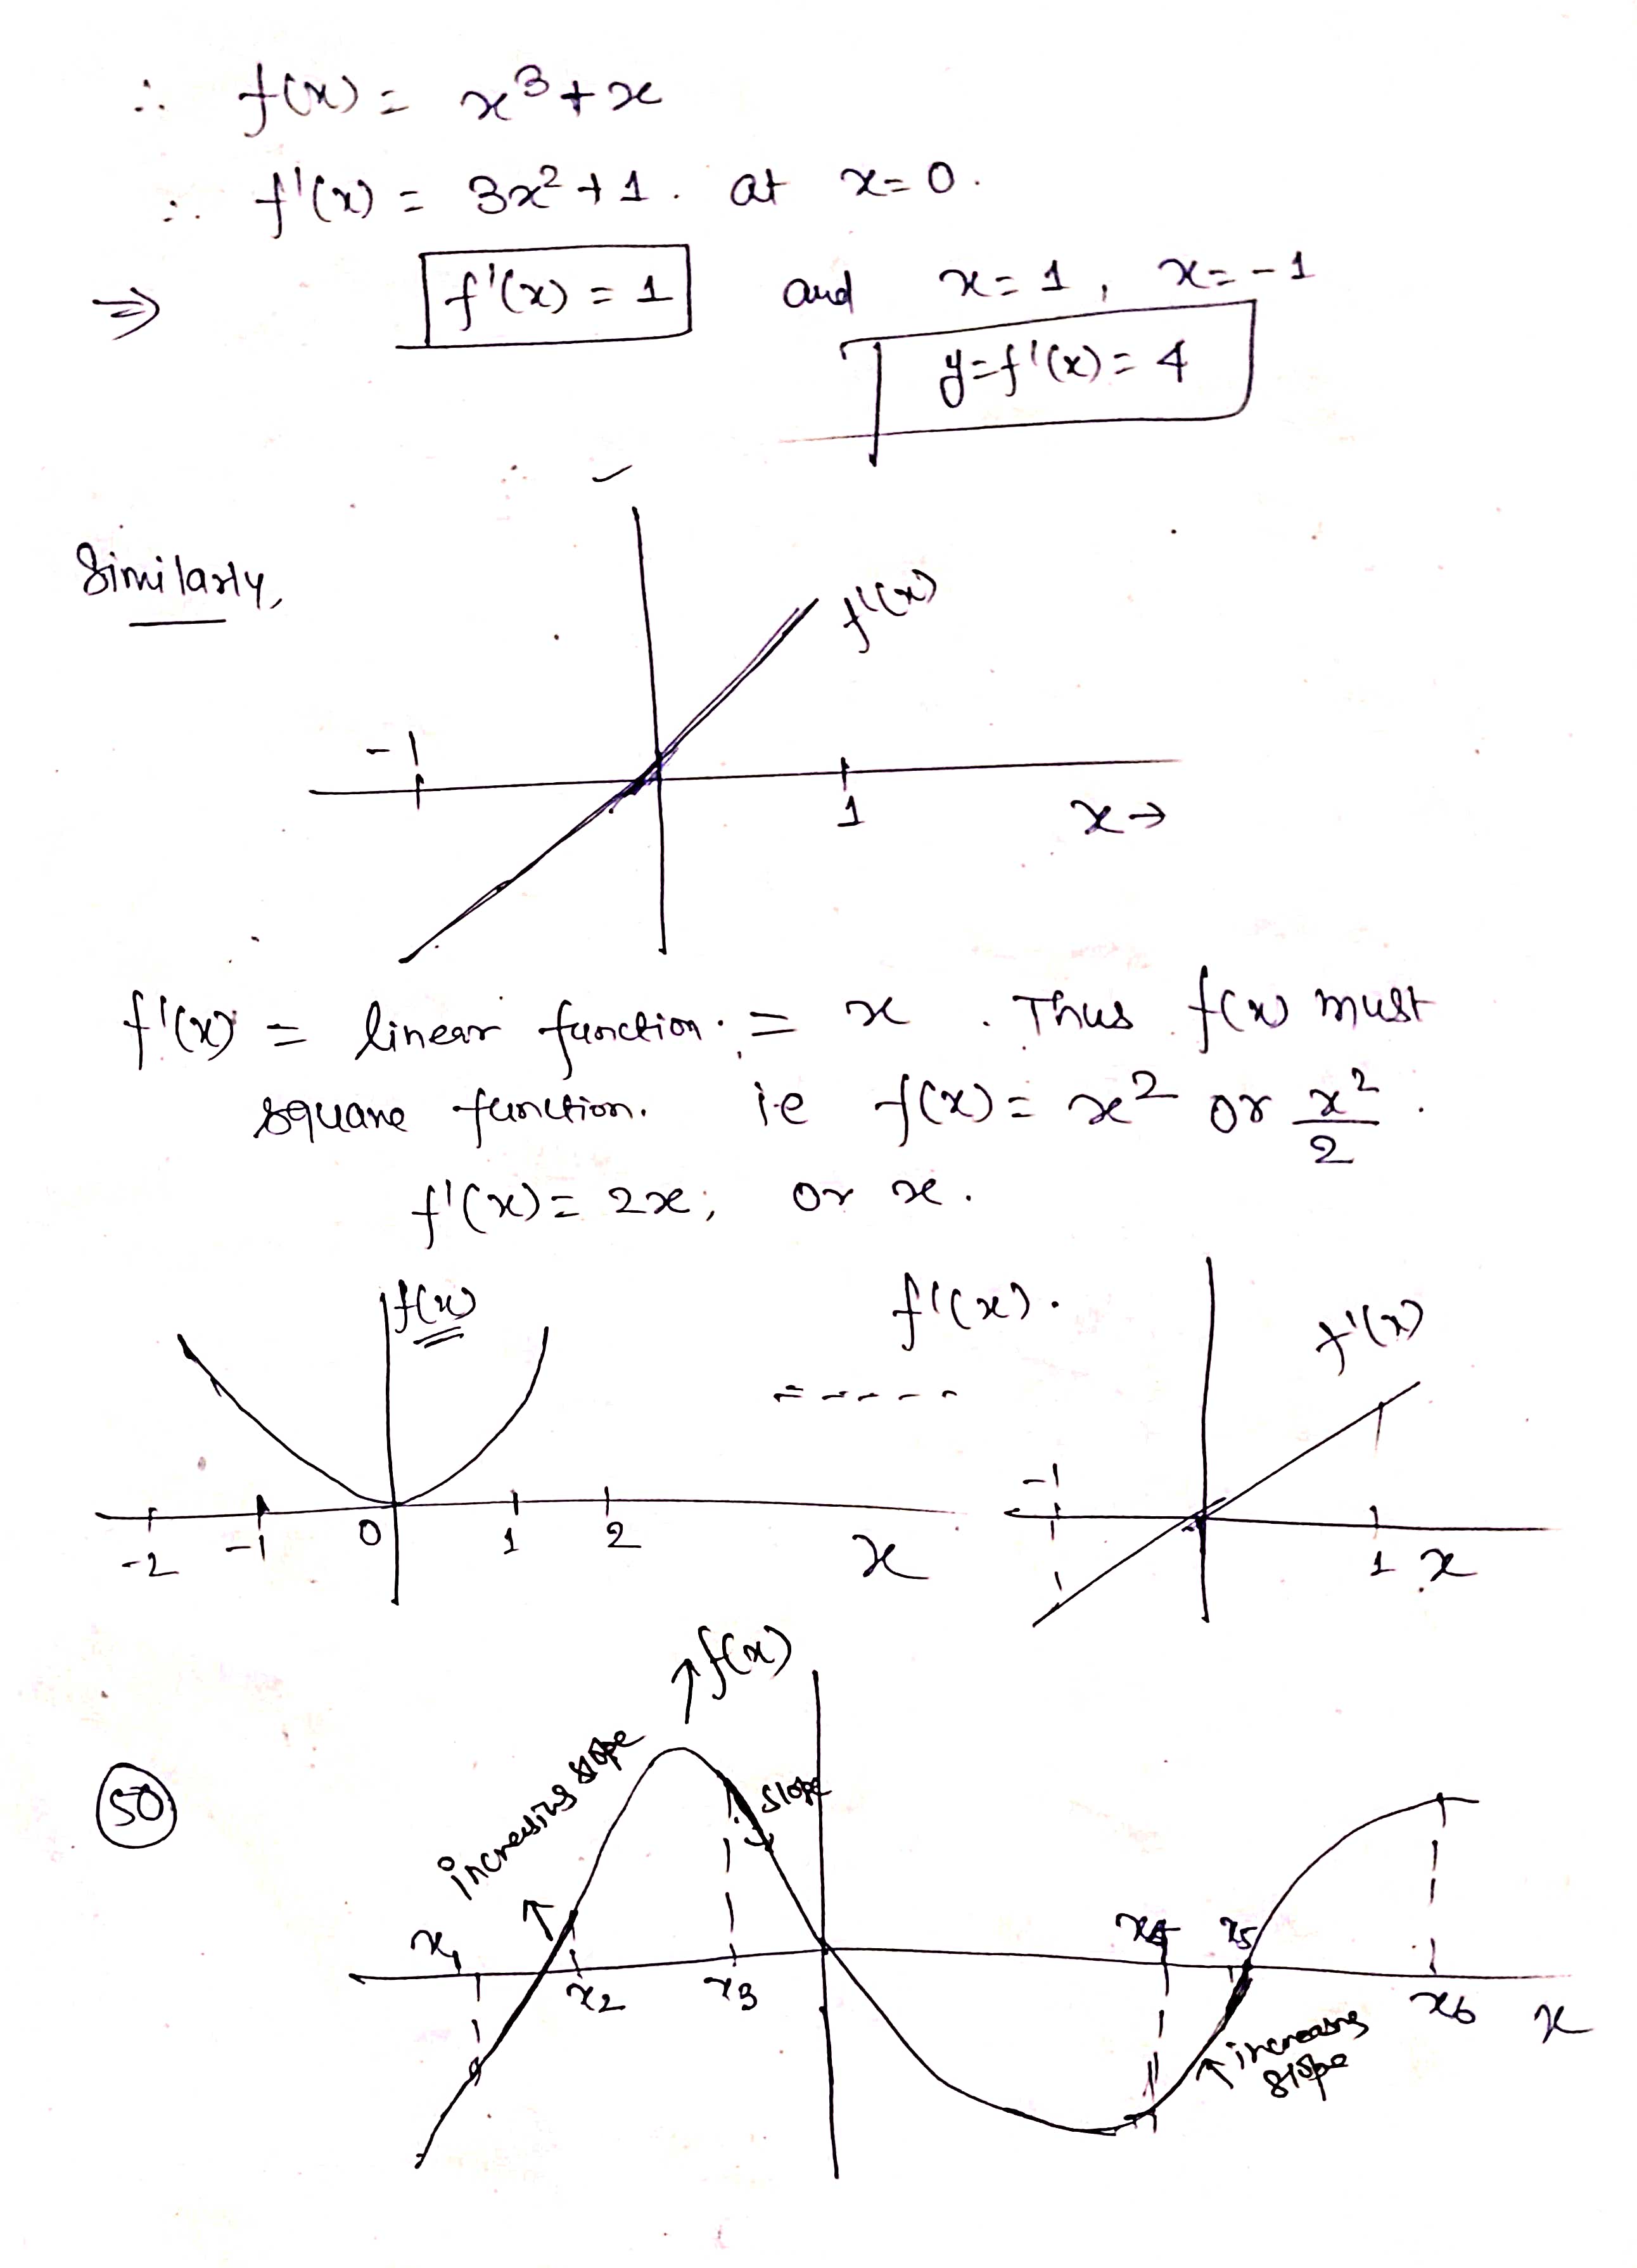 ∴ f(x) = x³ + x
∴ f'(x) = 3x² + 1 . at x = 0 .
⇒ f'(x) = 1 and x = 1 , x = -1
y = f'(x) = 4
Similarly,
f'(x)
-1
1 x →
f'(x) = linear function. = x . Thus f(x) must
square function. i.e f(x) = x² or x²/2 .
f'(x) = 2x; or x .
f(x) f'(x) . f'(x)
-2 -1 0 1 2 x
-1 1 x
↑ f(x)
50
increasing slope
slope
x₁ x₂ x₃ x₄ x₅ x₆ x
increasing
slope